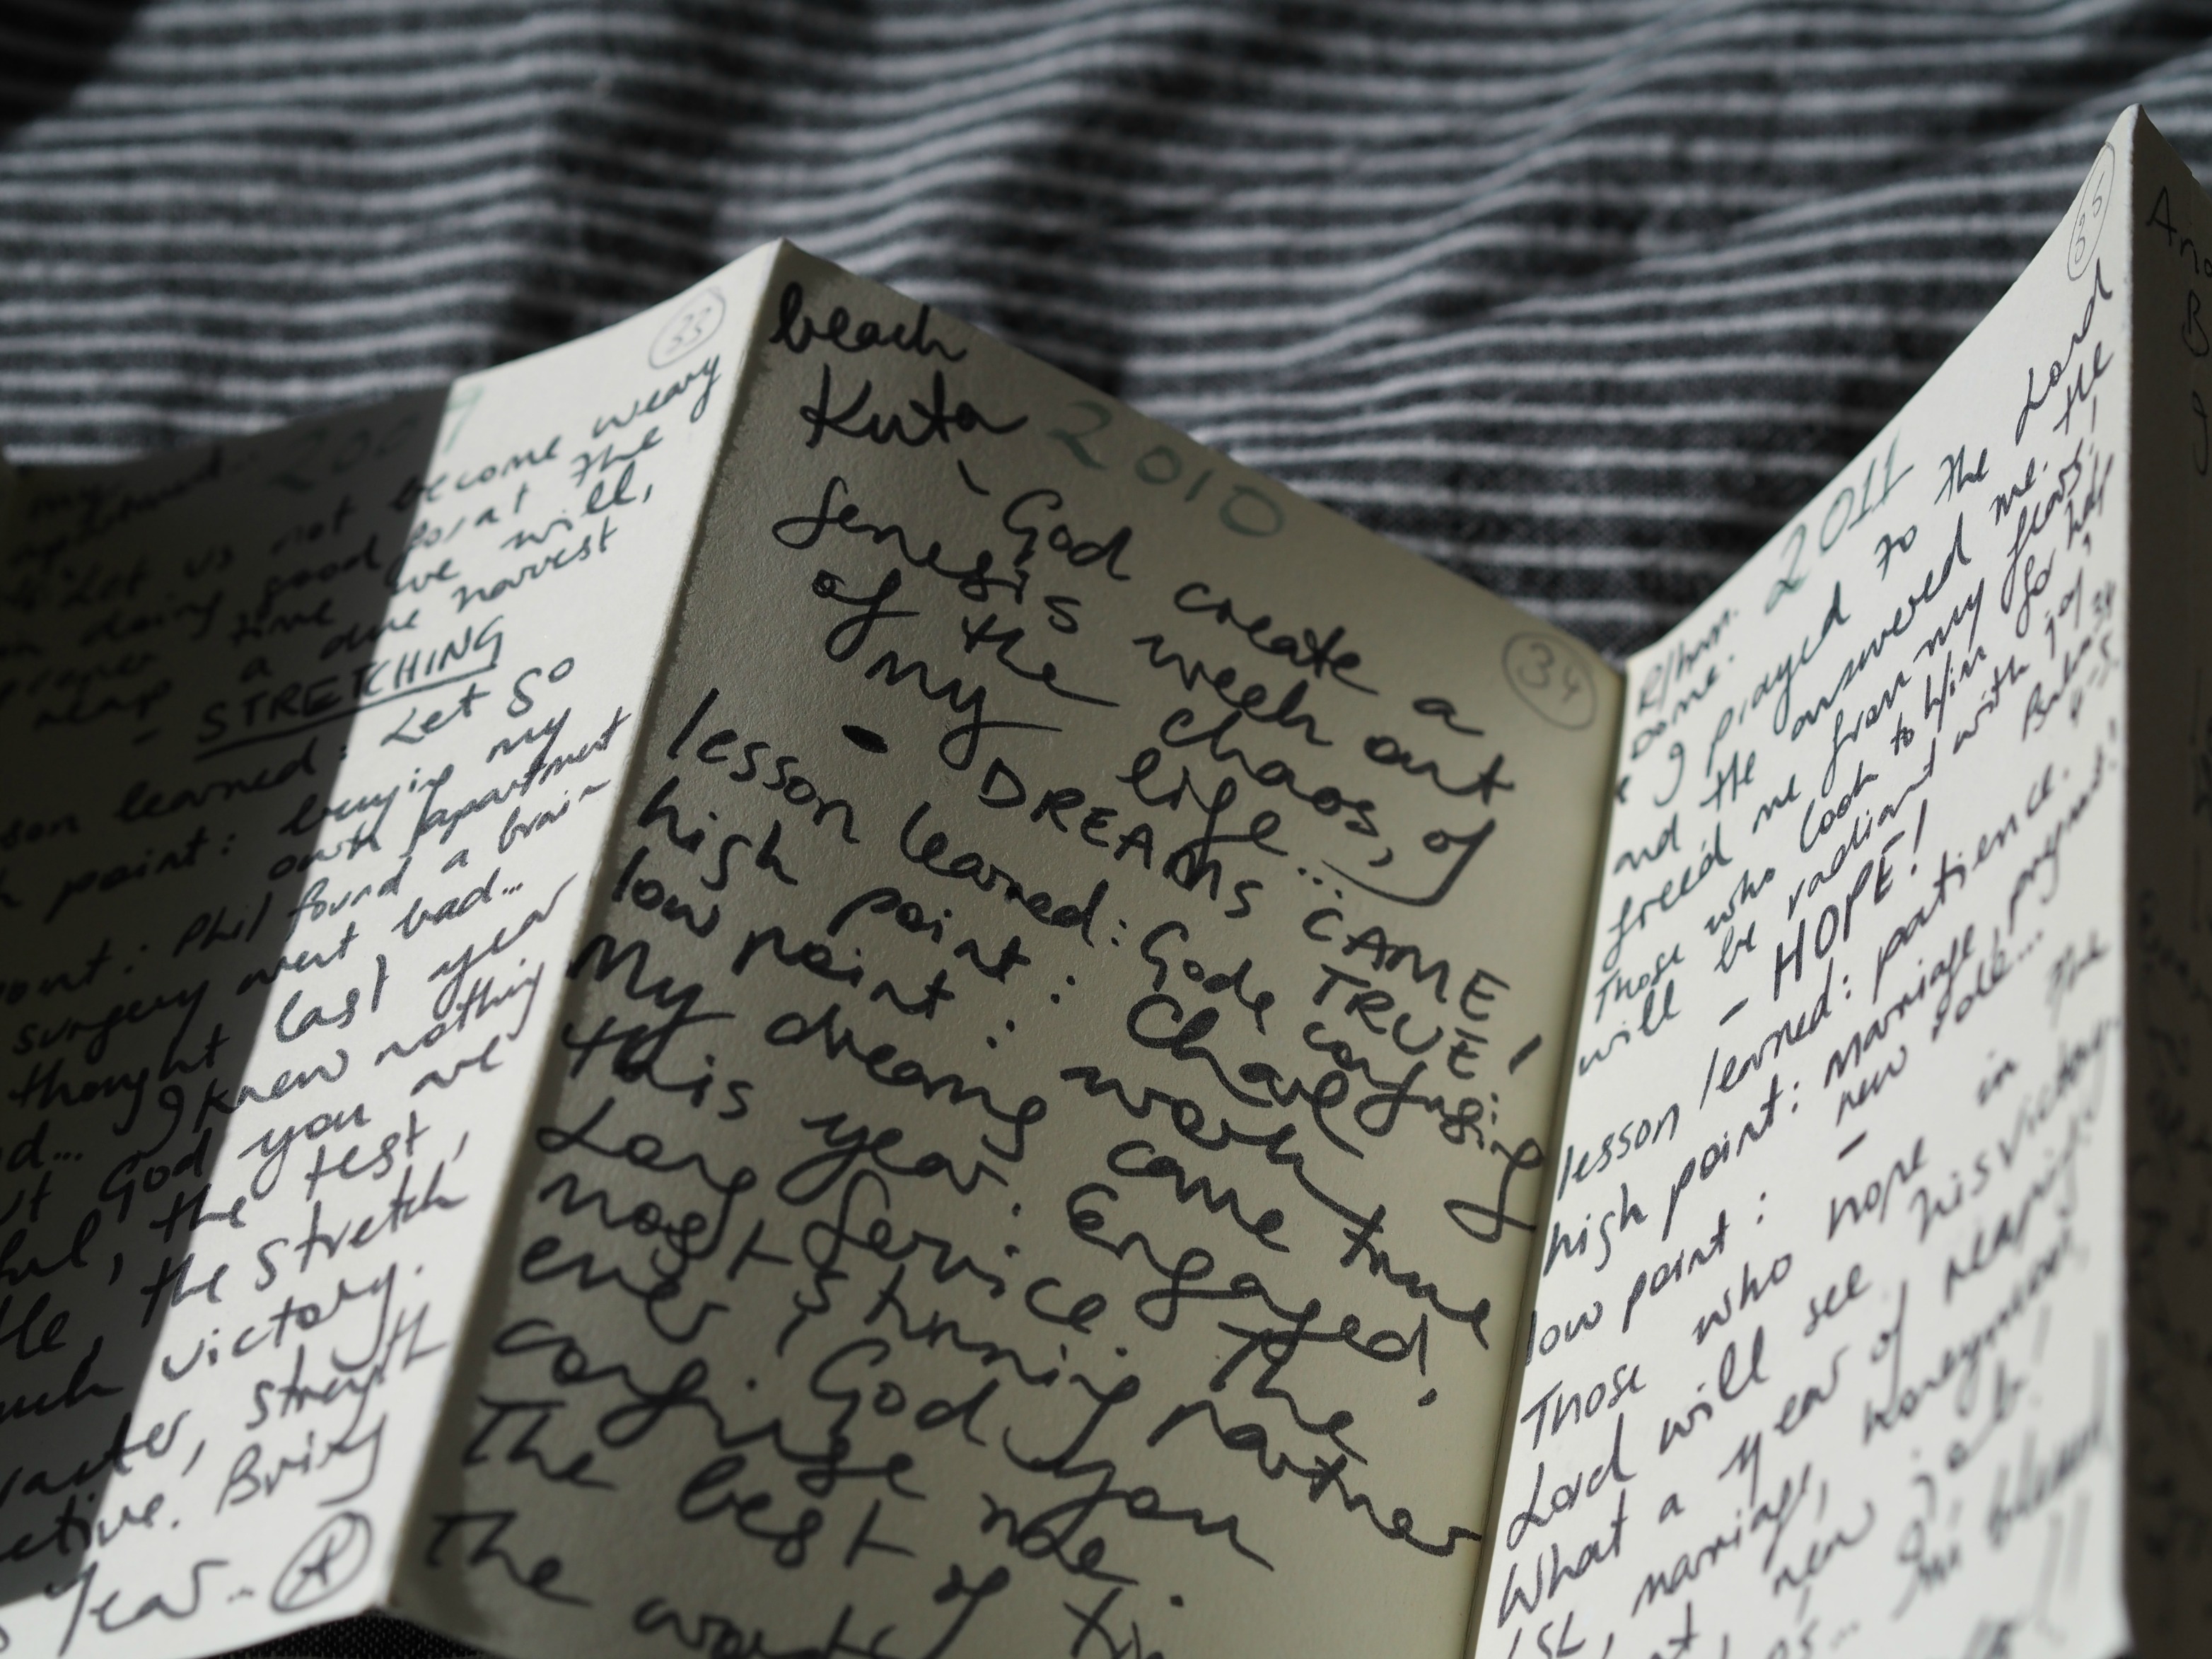 2007
33
my
Let us not become weary
in doing good for at the
proper time we will,
reap a due harvest
- STRETCHING
lesson learned: Let go
high point: buying my
own apartment
point: Phil found a brain
surgery went bad...
thought last year
I knew nothing
God you are
the test,
the stretch
victory.
strength
Bring
Year...
A
beach
Kuta 2010
34
- God create a
genesis week out
of the chaos, of
my life...
- DREAMS CAME
TRUE!
lesson learned: Gods confusing
high point: Charl
low point: work
My dreams came true
this year. Engaged!
Long service. The
most stunning partner
ever; God you
confuse me.
The best of
the
2011
35
Rome.
I prayed to the Lord
and the answered me. the
freed me from my fears!
Those who look to him for help
will be radiant with joy,
34
4-5
- HOPE!
lesson lerned: patience.
high point: Marriage,
new
low point: -
Those who hope in the
Lord will see his victory.
What a year of reaping!
LSL, marriage, honeymoon,
new job!
I'm blessed